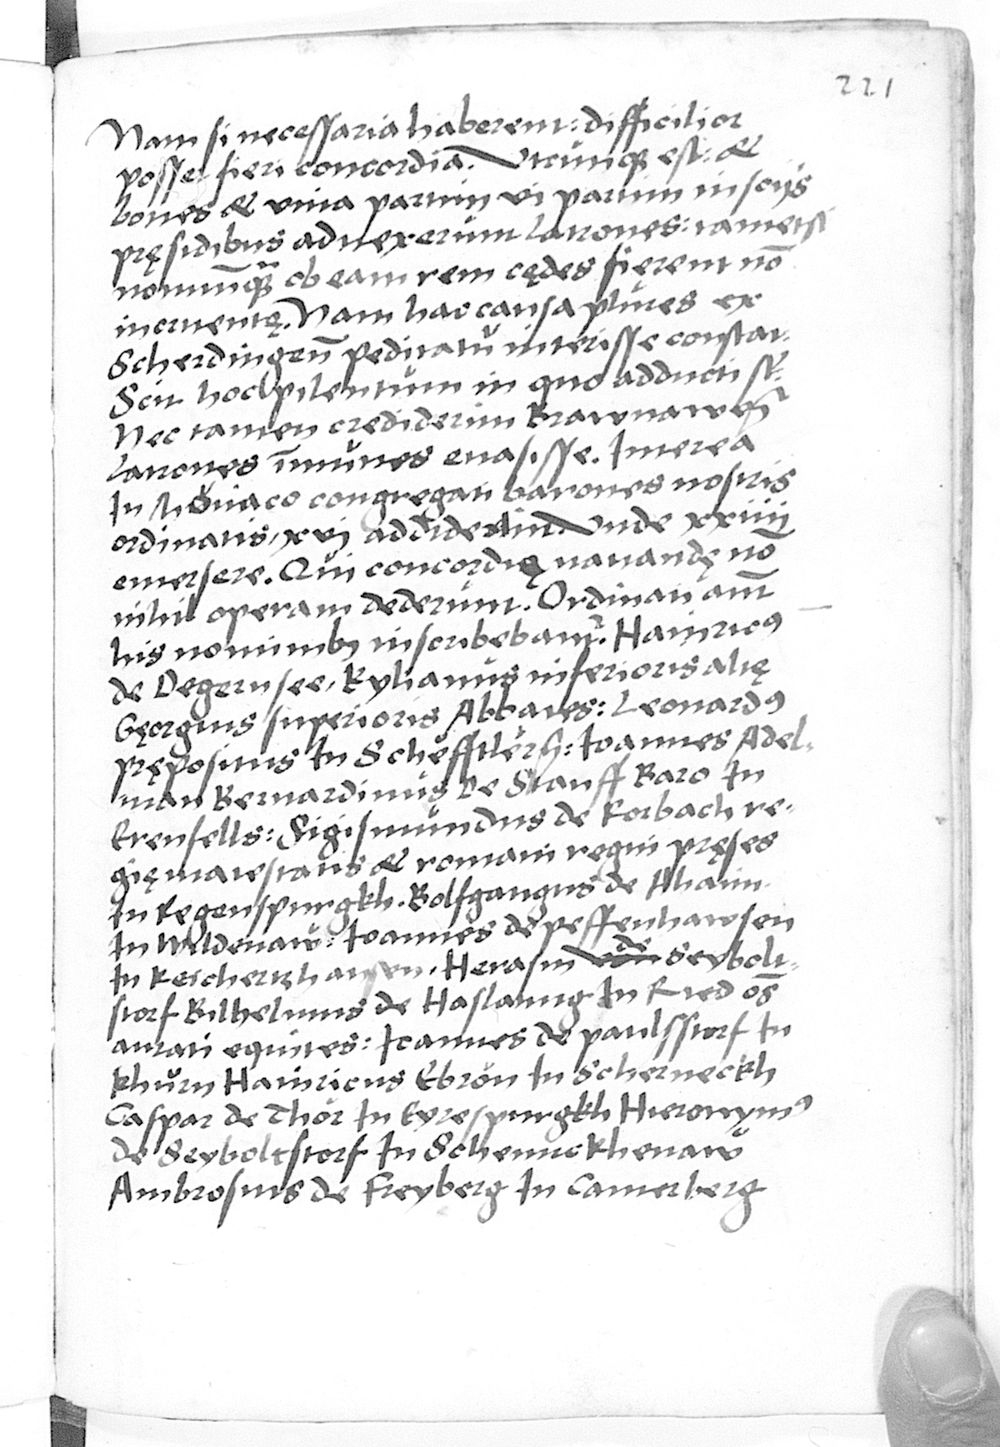 221
Nam si necessaria haberent: difficilior
posset fieri concordia. Vtcunq̃ est: &
boues & vina partim vi partim insciis
pręsidibus aduexerunt latrones: tametsi
nonnunq̃ ob eam rem cędes fierent nō
incruentę. Nam hac causa plures ex
Scherdingeñ peditatũ interisse constat.
Scit hoc pilentum in quo adducti st̄:
Nec tamen crediderim Brawnaweñ
latrones īmunes euasisse. Interea
In Monaco congregati barones nostris
ordinatis, xvj addiderunt. Vnde xxiiij
emersere. Qui concordię nauandę nō
nihil operam dederunt. Ordinati aūt
his nominibꝫ inscribebant̃. Hainricꝰ
de Degernsee, Kylianus inferioris alię
Gęorgius superioris Abbates: Leonardꝰ
prępositus In Schefftlerñ: Ioannes Adel-
man Bernardinus De Stauff Baro In
Erenfells: Sigismundus de Rorbach re-
gię maiestatis & romani regni pręses
In Regenspurgkh. Bolfgangus de Ahaim
In Wildenaw: Ioannes de peffenhawsen
In Reichertzhausen. Herasm de Seybolt-
storf Bilhelmus de Haslanng In Ried ōs
aurati equites: Ioannes de paulsstorf In
khurn Hainricus Ebron In Scherneckh
Caspar de Thor In Eyrespurgkh Hieronymꝰ
de Seyboltstorf In Schennckhenaw
Ambrosius de Freyberg In Camerberg